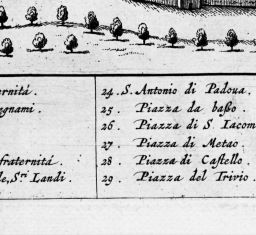 ernitá.
egnami.
fraternitá
le, S.ri Landi.
24. S. Antonio di Padoua.
25. Piazza da baßo.
26. Piazza di S. Iacom
27. Piazza di Metao.
28. Piazza di Castello.
29. Piazza del Trivio.